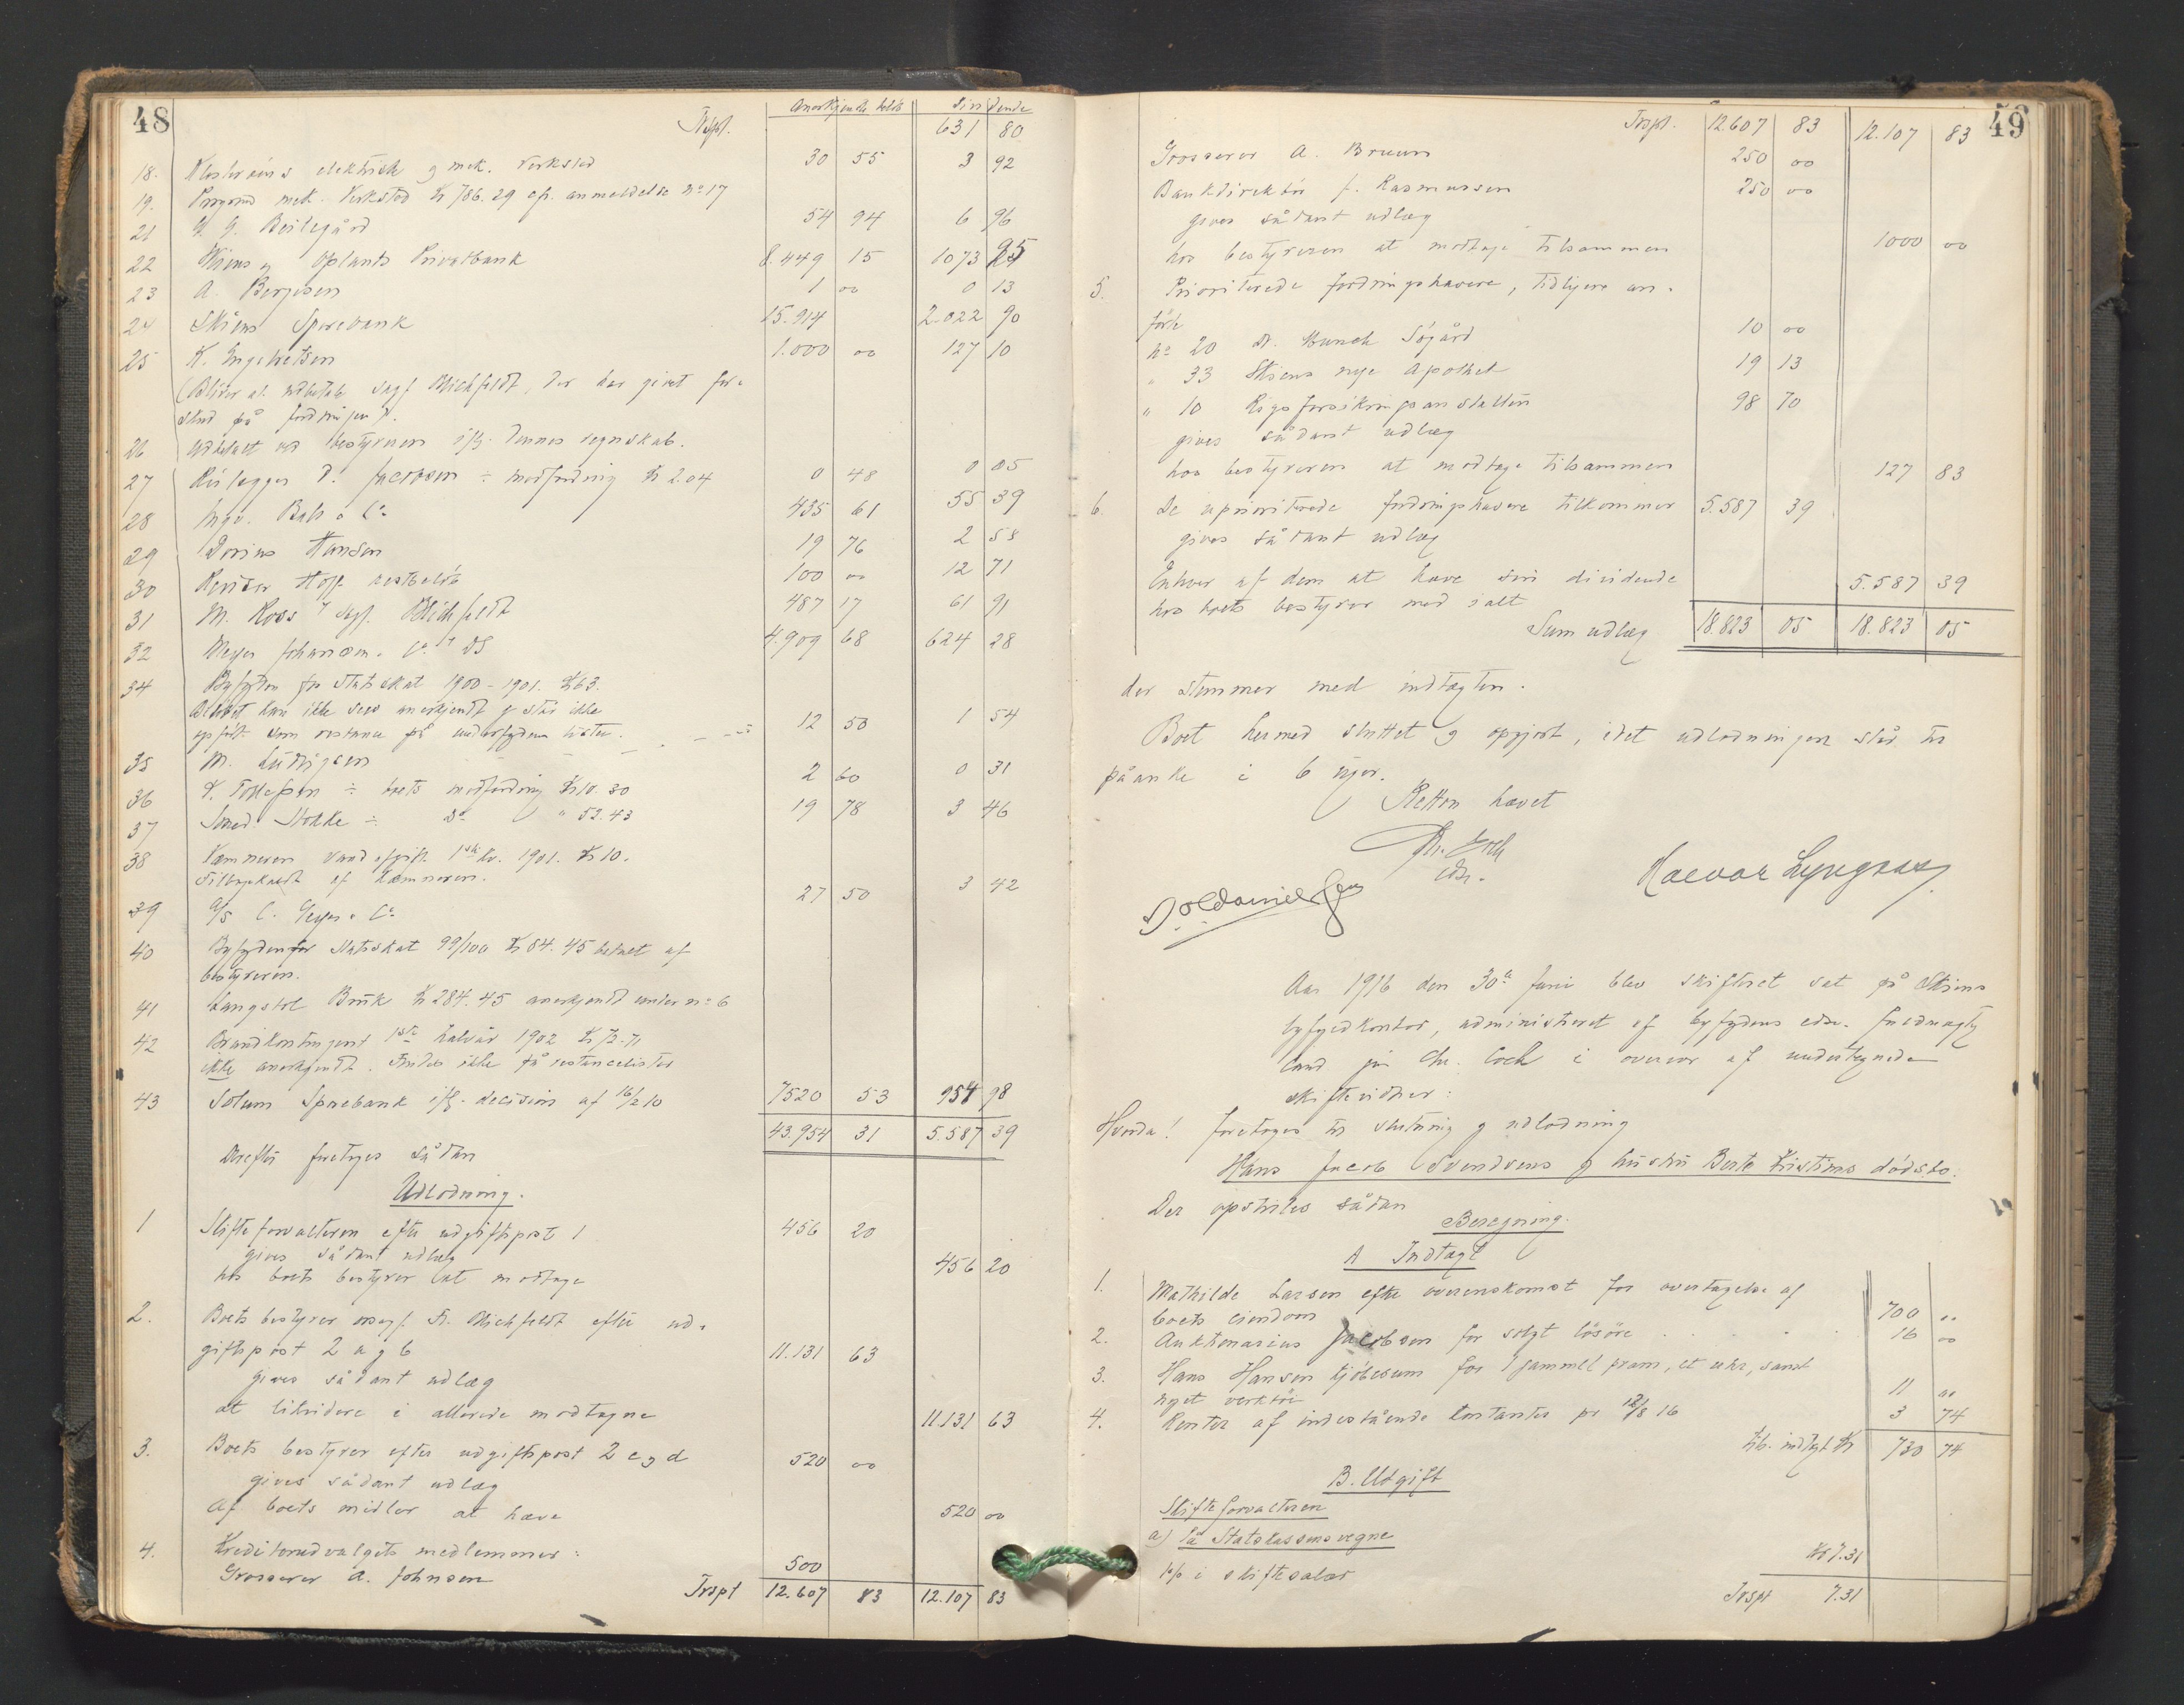 48
Anerkjendte beløb Dividende
Trspt. 631 80
18. Klosterøens elektrisk og mek. Verksted 30 55 3 92
19. Porsgrund mek. Verksted Kr 786.29 cfr. anmeldelse No 17
21 Beilegård 54 94 6 96
22 Skiens og Oplands Privatbank 8.449 15 1073 25
23 A. Bergesen 1 00 0 13
24 Skiens Sparebank 15.914 2.022 90
25 K. Engebretsen 1.000 00 127 10
(Bliver at udbetale sagf. Blichfeldt, der har givet for-
skud på fordringen).
26 Udbetalt ved bestyreren iflg. dennes regnskab.
27 Rørlægger P. Jacobsen ÷ modfordring Kr 2.04 0 48 0 05
28 Ingv. Bals & Co 435 61 55 39
29 Dorius Hansen 19 76 2 58
30 Revisor Hoff restbeløb 100 00 12 71
31 M. Roos v/ sagf. Blichfeldt 487 17 61 91
32 Meyer Johansen & Co v/ DS 4.909 68 624 28
34 Byfogden for Statsskat 1900-1901. Kr 63.
Beløbet kan ikke sees anerkjendt og står ikke
opført som restance på underfogdens lister. 12 50 1 54
35 M. Ludvigsen
36 K. Tollefsen ÷ boets modfordring Kr 10.30 2 60 0 31
37 Smed Stokke ÷ Do " 52.43 19 78 3 46
38 Kæmneren vandafgift 1ste kv. 1901. Kr 10.
Tilbagekaldt af kæmneren.
39 A/S C. Geijer & Co 27 50 3 42
40 Byfogden for Statsskat 99/100 Kr 84.45 betalt af
bestyreren.
41 Langstol Bruk Kr 284.45 anerkjendt under no 6
42 Brandkontingent 1ste halvår 1902 Kr 72.71
ikke anerkjendt. Findes ikke på restancelister
43 Solum Sparebank iflg. decision af 16/2 10 7520 53 954 98
43.954 31 5.587 39
Derefter foretoges sådan
Udlodning.
1 Skifteforvalteren efter udgiftspost 1 456 20
gives sådant udlæg
hos boets bestyrer at modtage 456 20
2. Boets bestyrer orsagf. Fr. Blichfeldt efter ud-
giftspost 2 a g b 11.131 63
gives sådant udlæg
at likvidere i allerede modtagne 11.131 63
3. Boets bestyrer efter udgiftspost 2 c g d 520 00
gives sådant udlæg
af boets midler at hæve 520 00
4. Kreditorudvalgets medlemmer:
Grosserer A. Johnsen 500
Trspt 12.607 83 12.107 83
49
Trspt. 12.607 83 12.107 83
Grosserer A. Bruun 250 00
Bankdirektør J. Rasmussen 250 00
gives sådant udlæg
hos bestyreren at modtage tilsammen 1000 00
5. Prioriterede fordringshavere, tidligere an-
førte
No 20 Dr. Munch Søgård 10 00
" 33 Skiens nye Apothek 19 13
" 10 Rigsforsikringsanstalten 98 70
gives sådant udlæg
hos bestyreren at modtage tilsammen 127 83
6. De uprioriterede fordringshavere tilkommer 5.587 39
gives sådant udlæg
Enhver af dem at hæve sin dividende
hos boets bestyrer med ialt 5.587 39
Sum udlæg 18.823 05 18.823 05
der stemmer med indtægten.
Boet hermed sluttet og opgjort, idet udlodningen står til
påanke i 6 uger.
Retten hævet
Chr. Coch
edsv.
Halvor Lyngaas
O. Danielsen
Aar 1916 den 30te Juni blev skifteret sat på Skiens
byfogedkontor, administreret af byfogdens edsv. fuldmægtig
cand. jur. Chr. Coch i overvær af undertegnede
skiftevidner:
Hvorda! foretoges til slutning og udlodning
Hans Jacob Svendsens og hustru Berte Kirstines dødsbo.
Der opstilles sådan
Beregning.
A Indtægt
1. Mathilde Larsen efter overenskomst for overtagelse af
boets eiendom 700 00
2. Auktionarius Jacobsen for solgt løsøre 16 00
3. Hans Hansen kjøbesum for 1 gammel pram, et uhr, samt
noget verktøi 11 00
4. Renter af indestående kontanter pr 12/8 16 3 74
tils. indtægt Kr 730 74
B. Udgift
Skifteforvalteren
a) På Statskassens vegne
1 % i skiftesalær Kr 7.31
Trspt 7.31